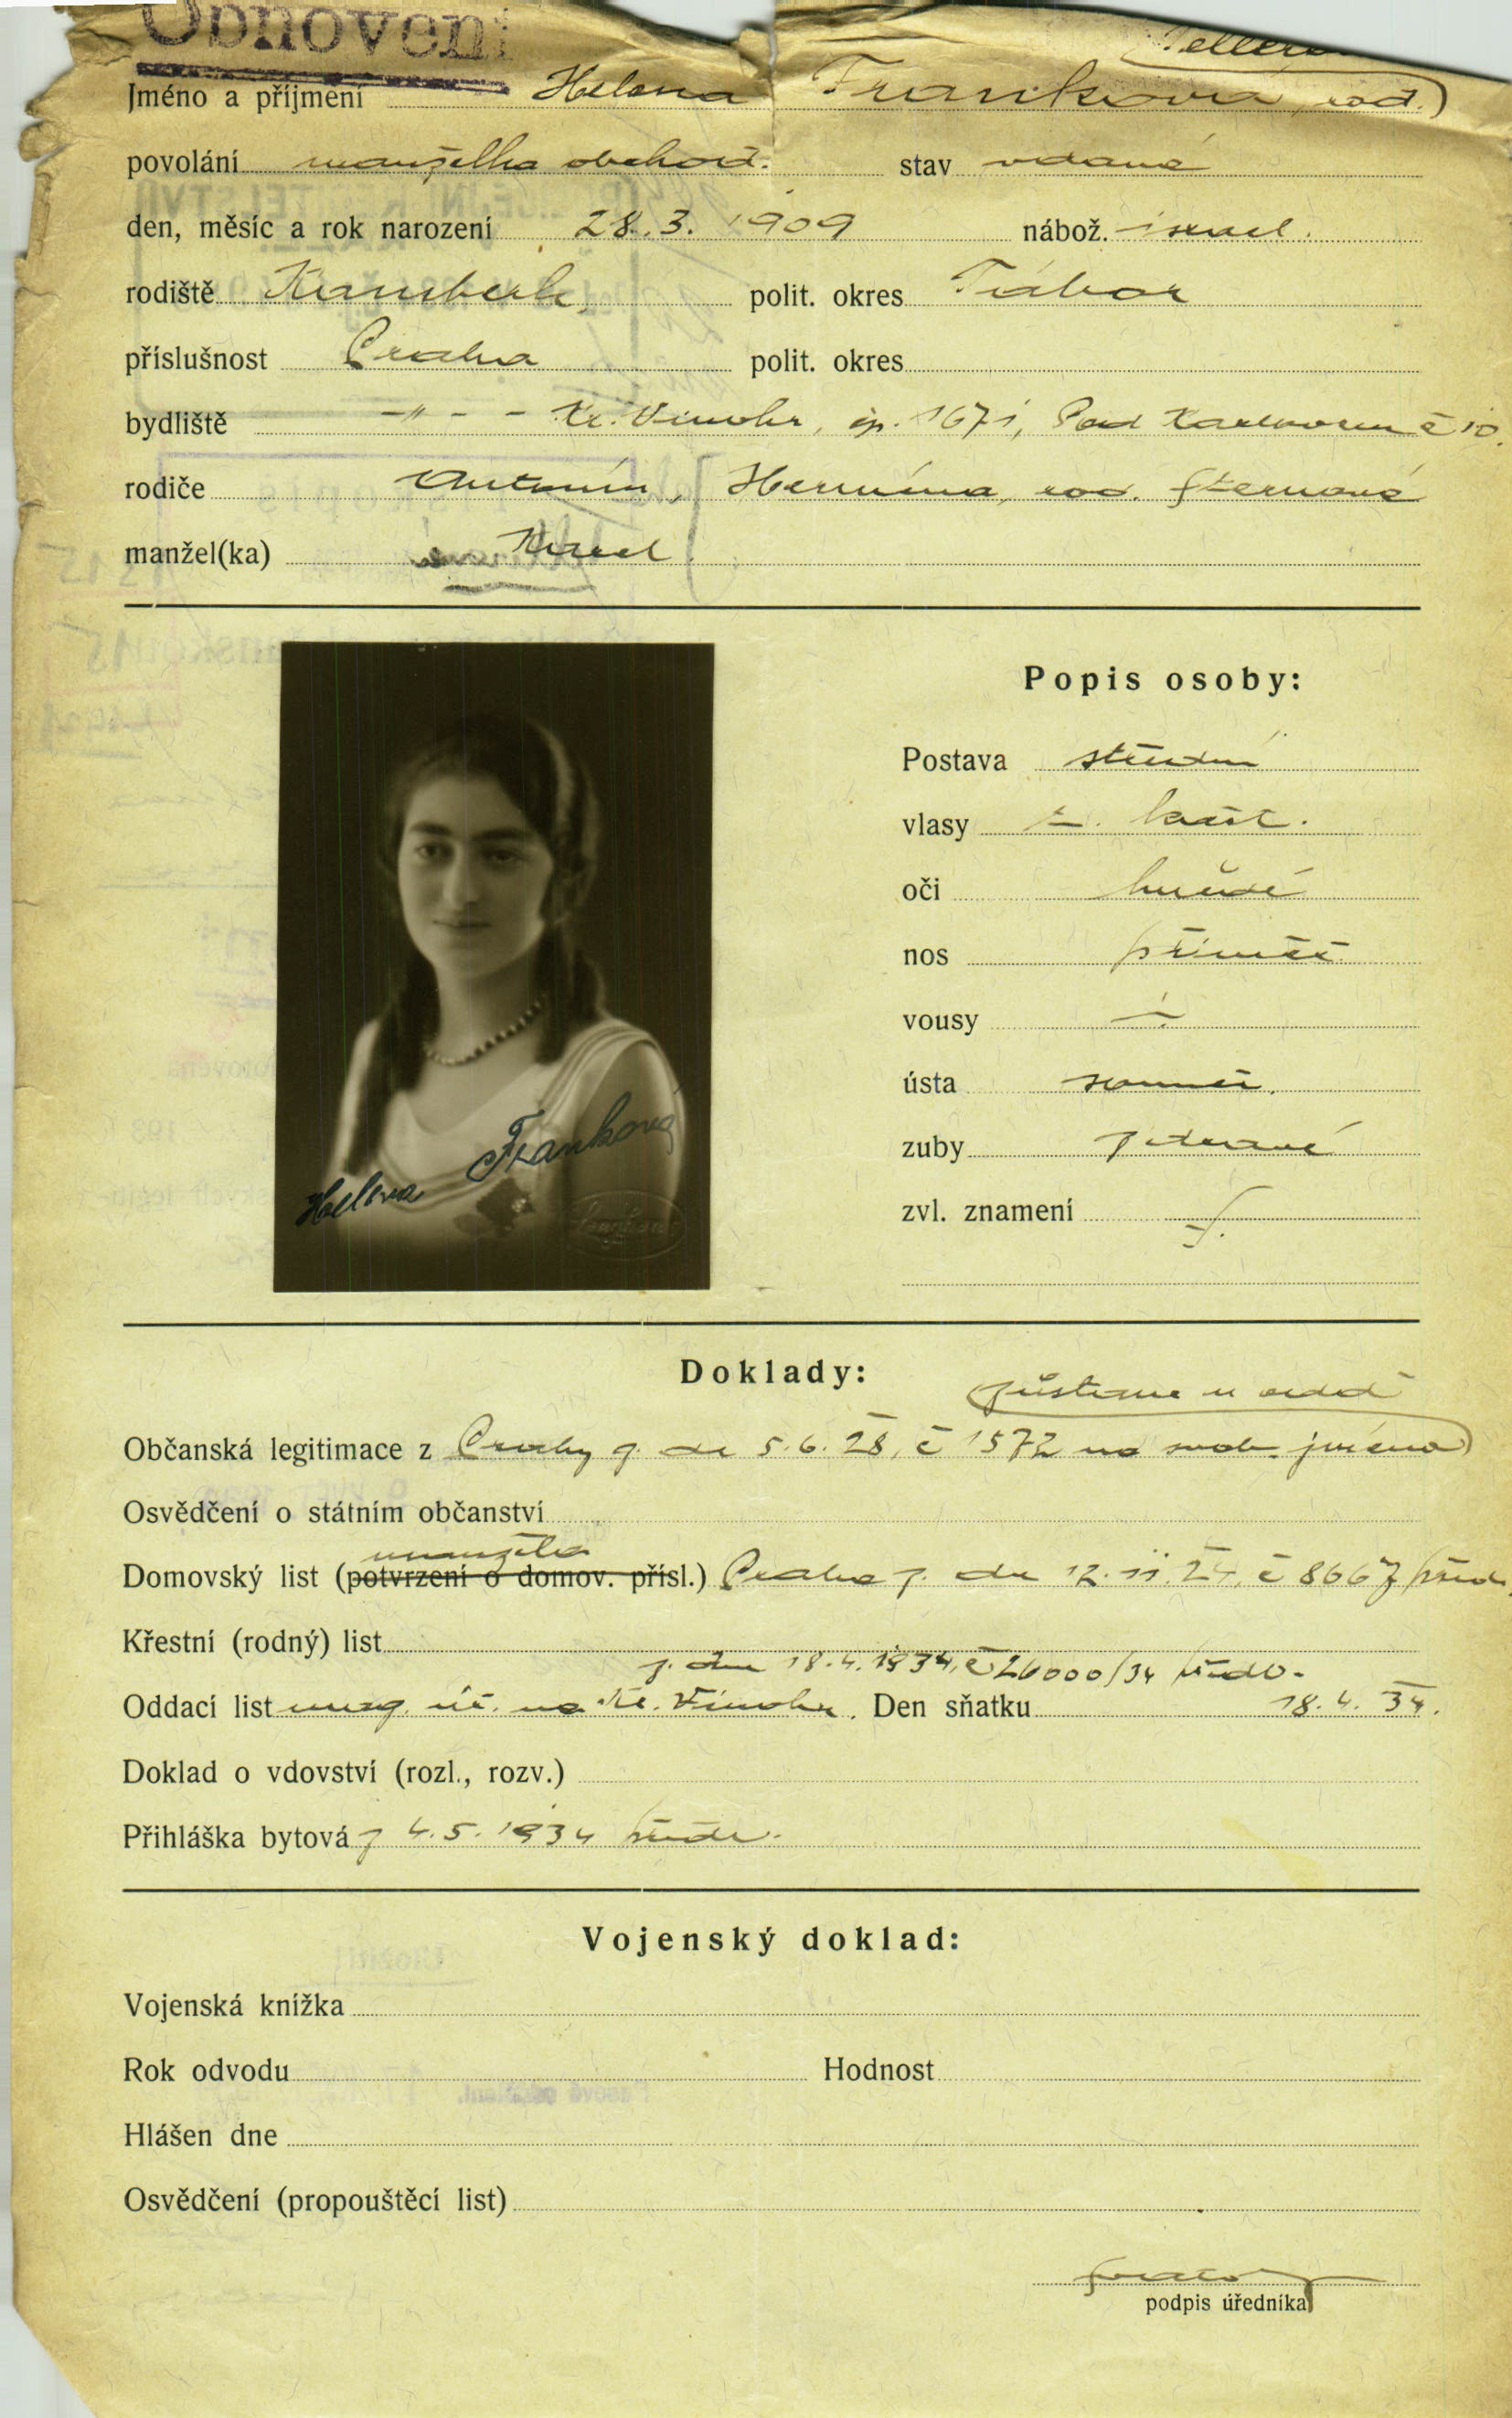 Obnovení
Jméno a příjmení Helena Franková, roz.
povolání manželka obchod. stav vdaná
den, měsíc a rok narození 28. 3. 1909 nábož. israel.
rodiště polit. okres Tábor
příslušnost Praha polit. okres
bydliště -"- - Kr. Vinohr., čp. 1671, Pod Karlovem č 10.
rodiče Antonín, Hermína, roz. Sternová
manžel(ka) Karel
Popis osoby:
Postava střední
vlasy t. kašt.
oči hnědé
nos přiměř.
vousy
ústa souměr.
zuby zdravé
zvl. znamení
Helena Franková
Doklady:
zůstane u
Občanská legitimace z Prahy z. de 5. 6. 28, č 1572 na svob. jméno
Osvědčení o státním občanství
manžela
Domovský list (potvrzení o domov. přísl.) Praha z. dne 12. 11. 24, č 8667
Křestní (rodný) list
z. dne 18. 4. 1934, č 26000/34 předl.
Oddací list mag. úř. na Kr. Vinohr. Den sňatku 18. 4. 34.
Doklad o vdovství (rozl., rozv.)
Přihláška bytová z 4. 5. 1934 předl.
Vojenský doklad:
Vojenská knížka
Rok odvodu Hodnost
Hlášen dne
Osvědčení (propouštěcí list)
podpis úředníka